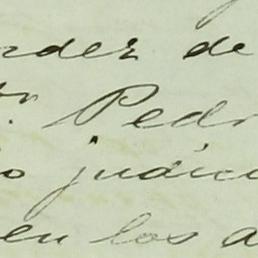 ndez de
or. Pedr
o judici
en los a